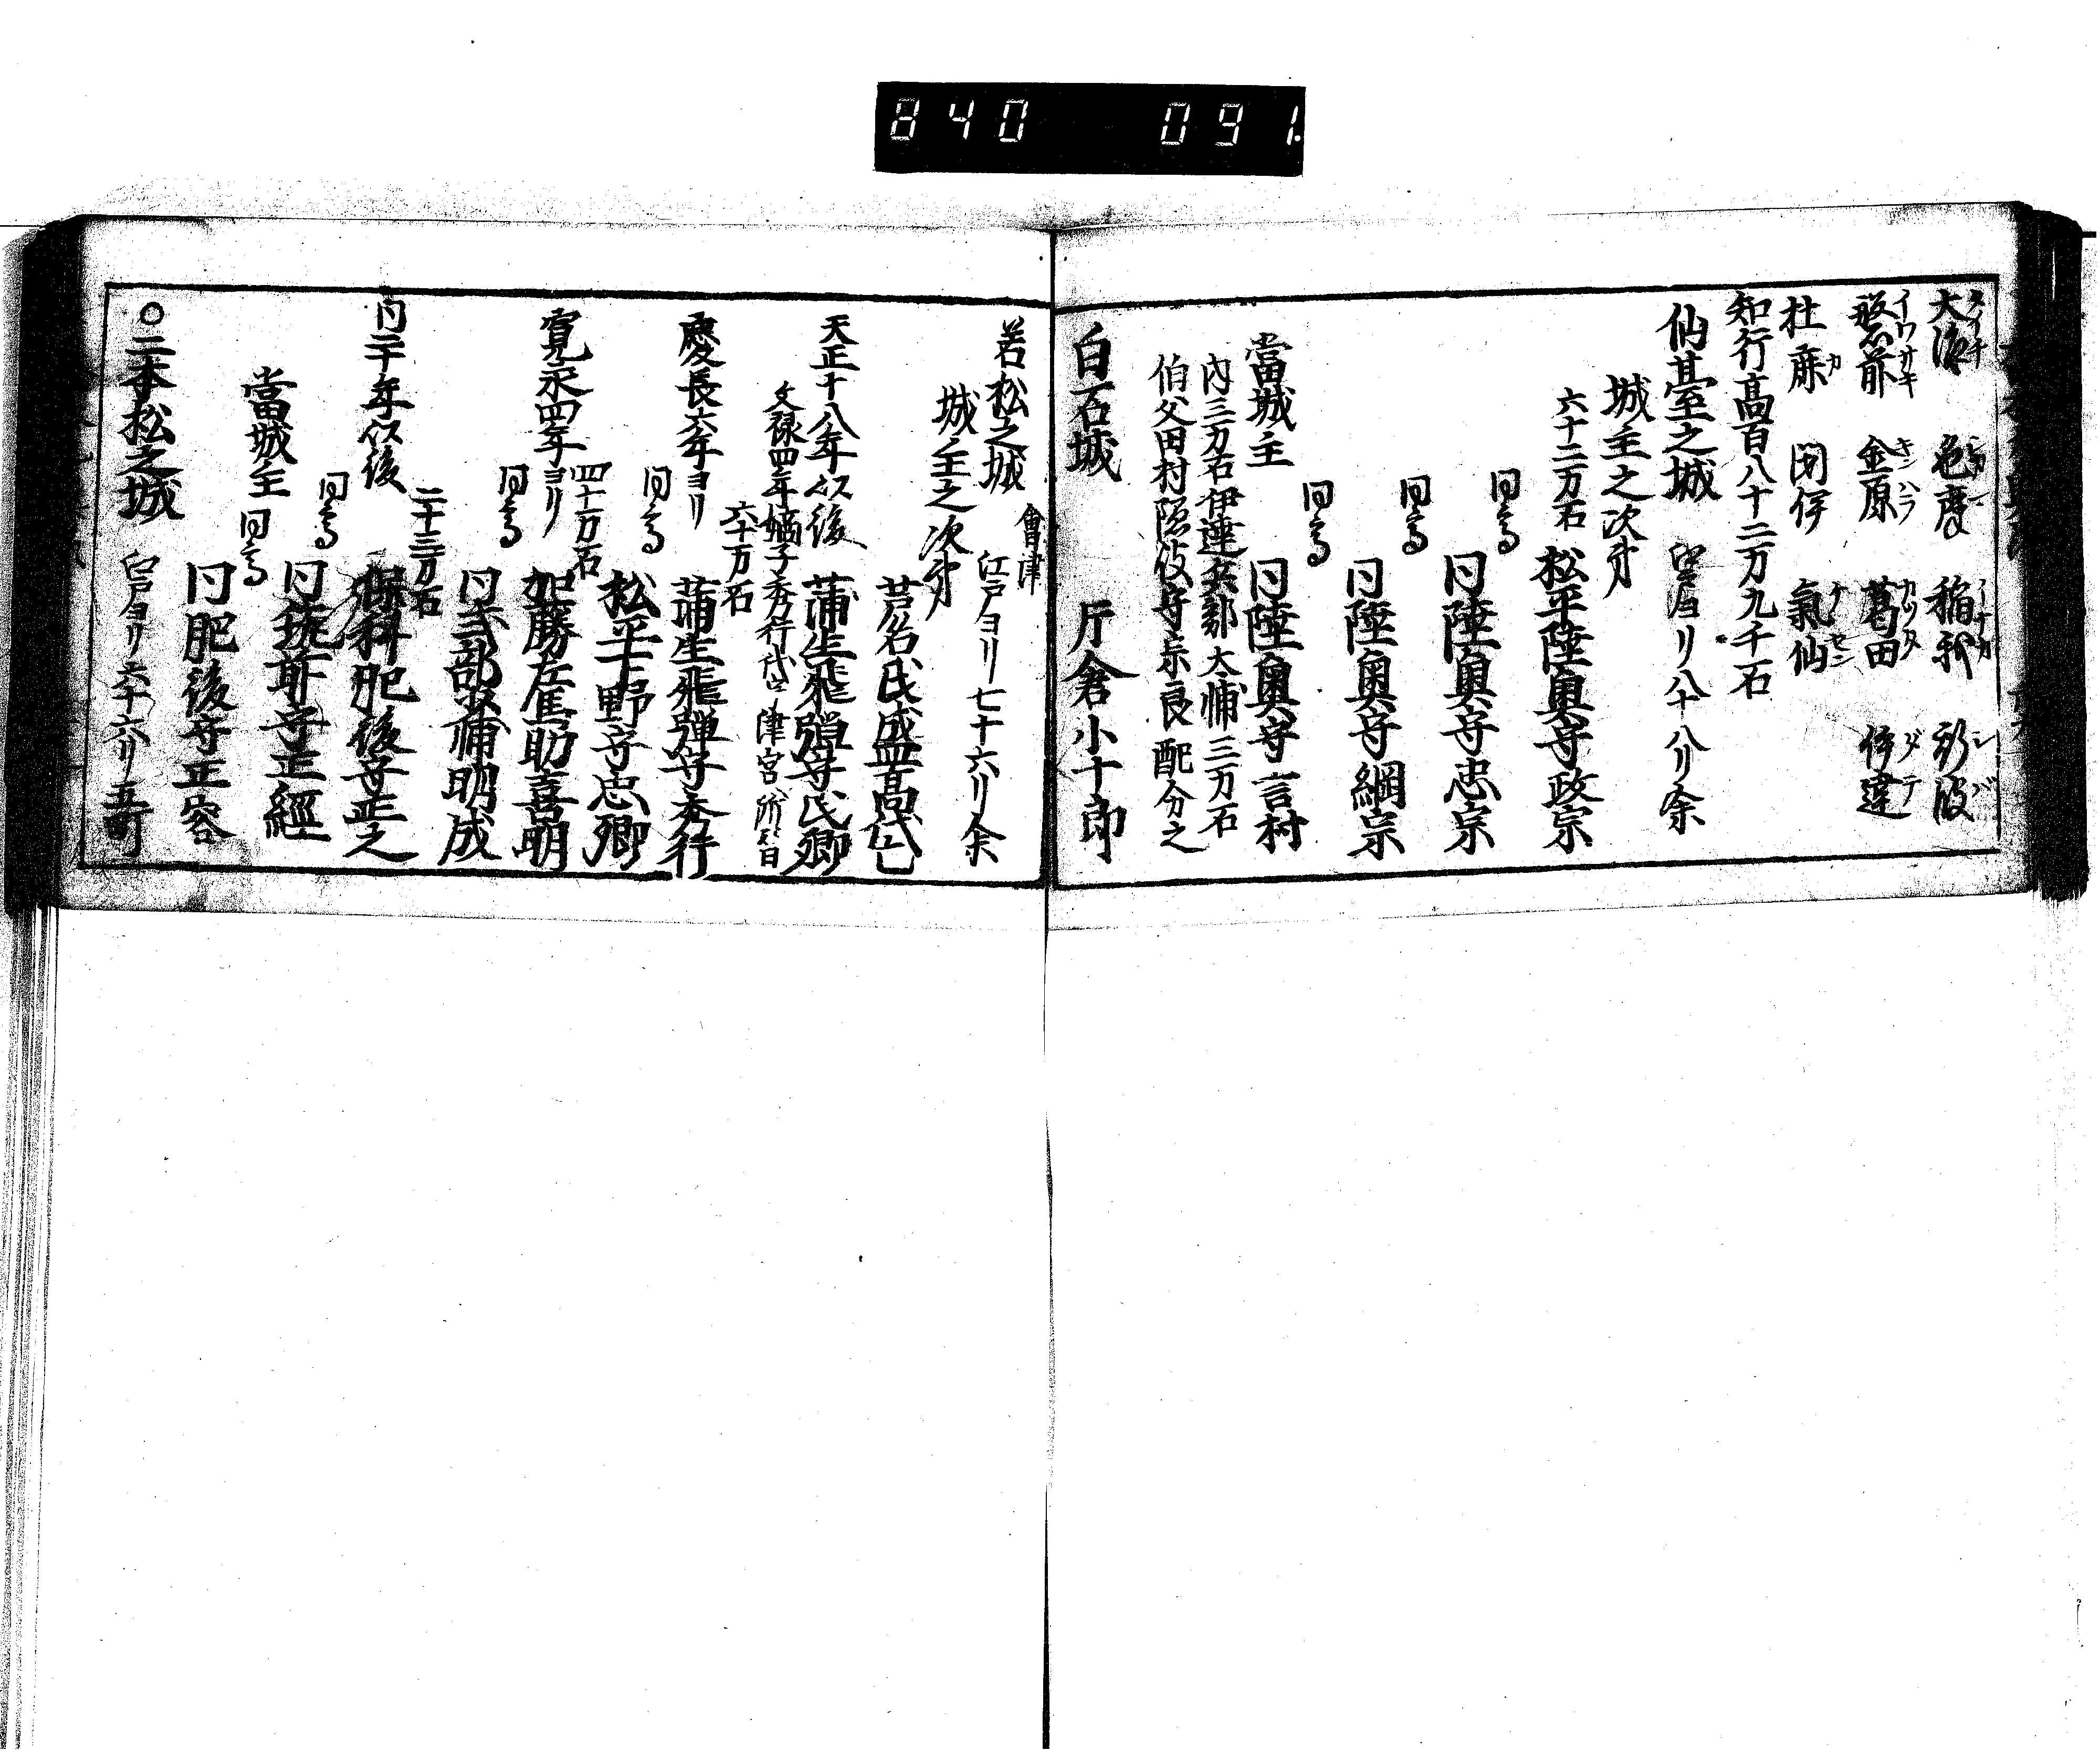 840 091.
大沼 色麻 稲我 彩波
金原 葛田 伊達
杜鹿 閉伊 氣仙
知行高百八十二万九千石
仙臺之城 江戸ヨリ八十八リ余
城主之次第
六十二万石 松平陸奥守政宗
同高 同陸奥守忠宗
同高 同陸奥守綱宗
同高
當城主 同陸奥守言村
内三万石伊達兵部太輔三万石
伯父田村隠岐守宗良配分之
白石城 片倉小十郎
會津
若松之城 江戸ヨリ七十六リ余
城主之次第
芦名氏盛高代已
天正十八年以後 蒲生飛弾守氏卿
文禄四年嫡子秀行代宇津宮所替
六十万石
慶長六年ヨリ 蒲生飛弾守秀行
同高 松平下野守忠卿
四十万石
寛永四年ヨリ 加藤左馬助喜明
同高 同式部少輔明成
二十三万石
同二十年以後 保科肥後守正之
同高 同筑前守正經
當城主 同高 同肥後守正容
○二本松之城 江戸ヨリ六十六リ五町